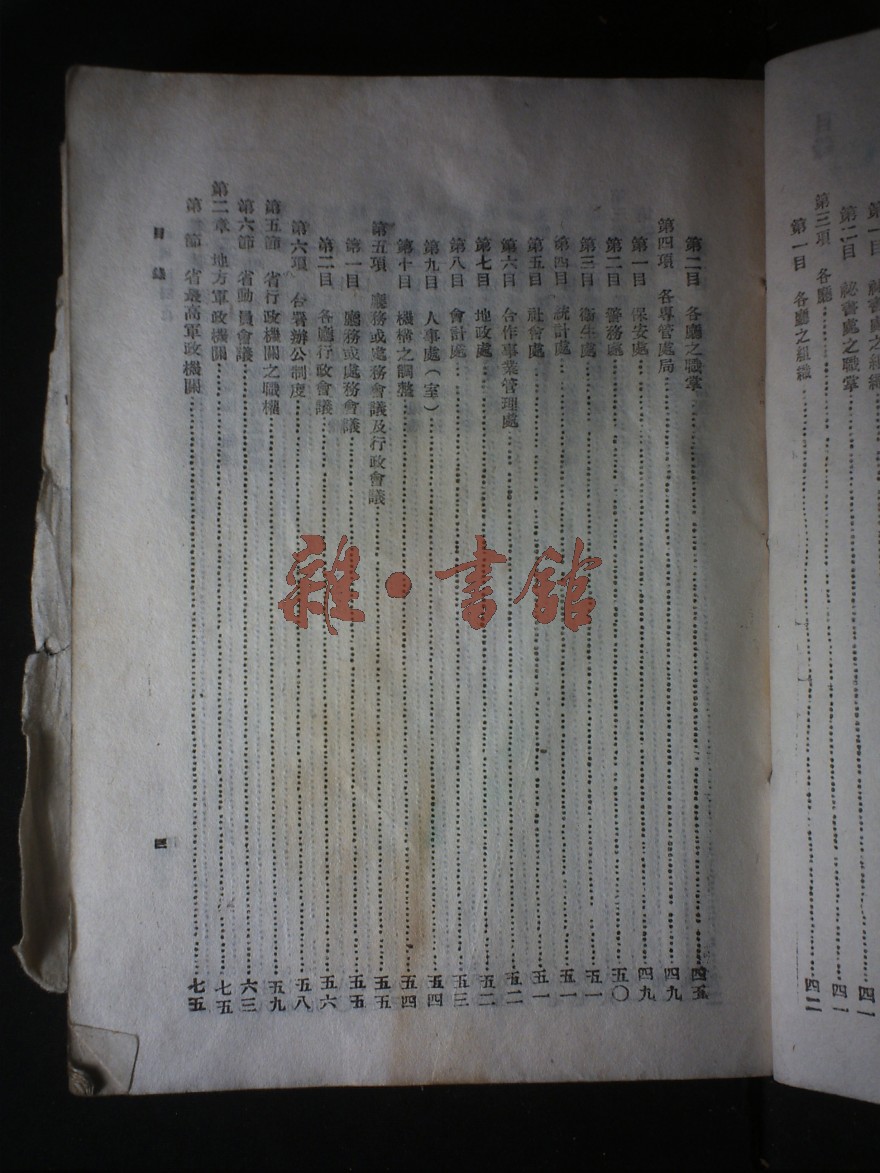 第一目 祕書處之組織……四一
第二目 祕書處之職掌……四一
第三項 各廳……四二
第一目 各廳之組織……四二
第二目 各廳之職掌……四五
第四項 各專管處局……四九
第一目 保安處……四九
第二目 警務處……五〇
第三目 衛生處……五一
第四目 統計處……五一
第五目 社會處……五一
第六目 合作事業管理處……五二
第七目 地政處……五二
第八目 會計處……五三
第九目 人事處（室）……五四
第十目 機構之調整……五四
第五項 廳務或處務會議及行政會議……五五
第一目 廳務或處務會議……五五
第二目 各廳行政會議……五六
第六項 合署辦公制度……五八
第五節 省行政機關之職權……五九
第六節 省動員會議……六三
第二章 地方軍政機關……七五
第一節 省最高軍政機關……七五
目錄
四
雜·書館